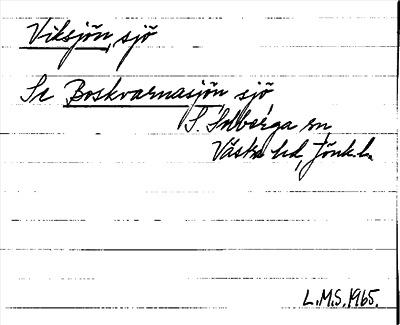 Viksjön, sjö
Se Boskvarnasjön sjö
S. Solberga sn,
Västra hd, Jönk. l.
L.M.S. 1965.